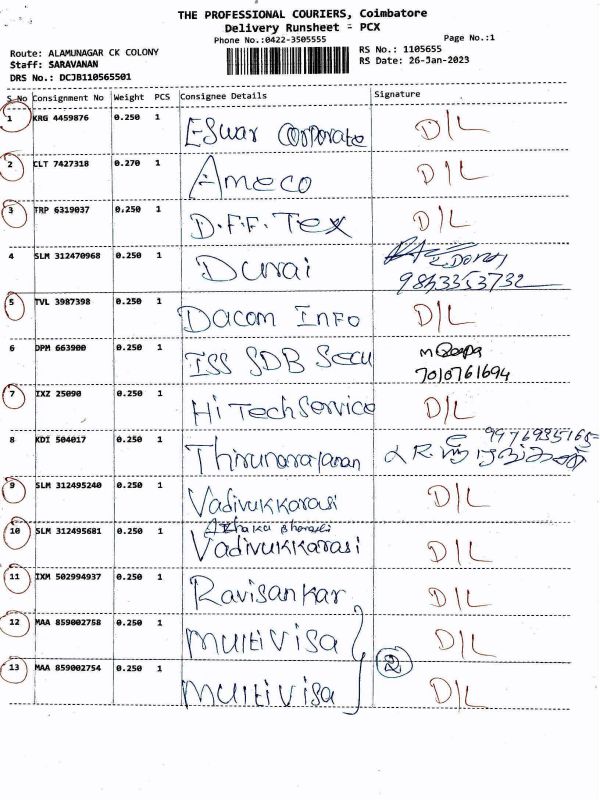 THE PROFESSIONAL COURIERS, Coimbatore
Delivery Runsheet - PCX
Phone No.:0422-3505555
Page No.:1
Route: ALAMUNAGAR CK COLONY
RS No.: 1105655
Staff: SARAVANAN
RS Date: 26-Jan-2023
DRS No.: DCJB110565501
S.No Consignment No Weight PCS Consignee Details Signature
1 KRG 4459876 0.250 1 Eswar Corporate D/L
2 CLT 7427318 0.270 1 Ameco D/L
3 TRP 6319037 0.250 1 D.F.F. Tex D/L
4 SLM 312470968 0.250 1 Durai
9843353732
5 TVL 3987398 0.250 1 Dacom Info D/L
6 DPM 663900 0.250 1 ISS SDB Secu
7010761694
7 IXZ 25090 0.250 1 Hi Tech Service D/L
8 KDI 504017 0.250 1 Thirunarayanan
9 SLM 312495240 0.250 1 Vadivukkarasi D/L
10 SLM 312495681 0.250 1 Vadivukkarasi D/L
11 IXM 502994937 0.250 1 Ravisankar D/L
12 MAA 859002758 0.250 1 Multivisa D/L
2
13 MAA 859002754 0.250 1 Multivisa D/L